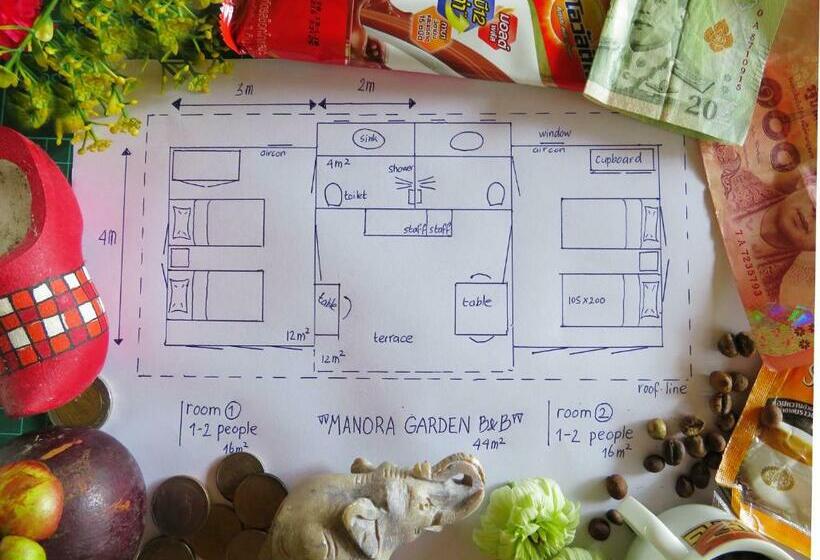 3m
2m
aircon
sink
window
aircon
Cupboard
4m²
shower
toilet
staff staff
4m
105x200
table
table
12m²
12m²
terrace
roof-line
room ①
1-2 people
16m²
"MANORA GARDEN B&B"
44m²
room ②
1-2 people
16m²
20
100
7A7235793
0A